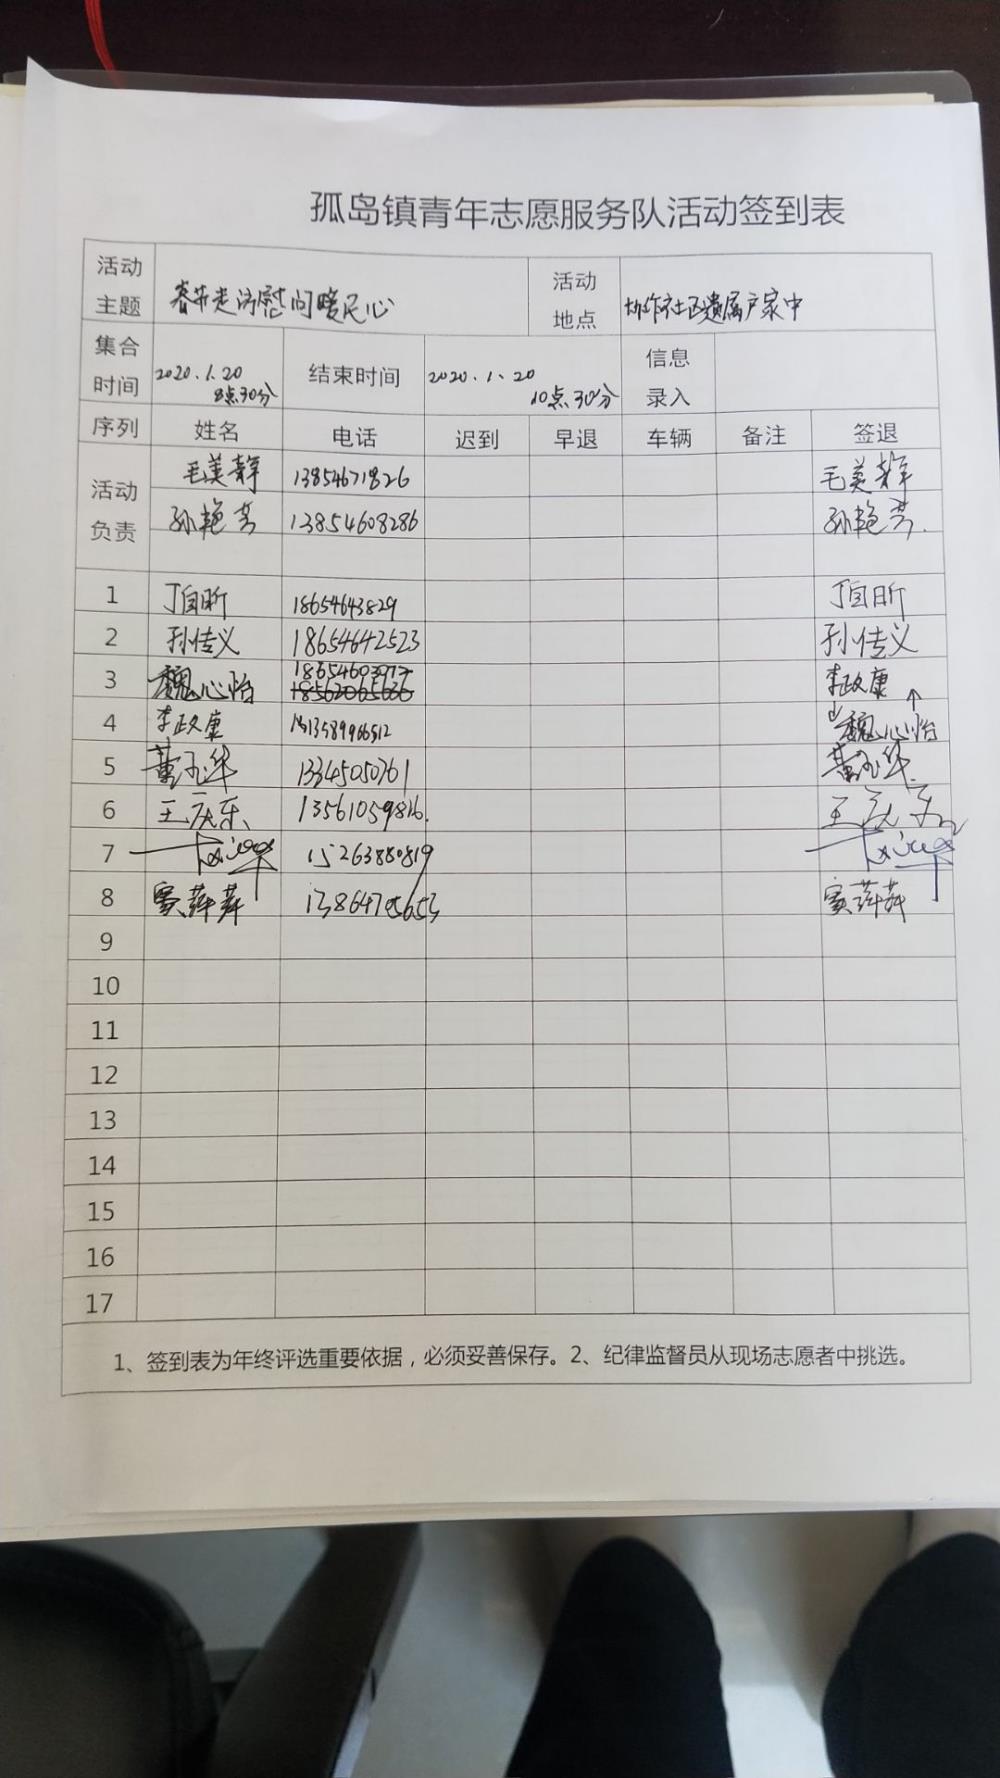 孤岛镇青年志愿服务队活动签到表
活动主题 春节走访慰问暖民心 活动地点 协作社区遗属户家中
集合时间 2020.1.20 8点30分 结束时间 2020.1.20 10点30分 信息录入
序列 姓名 电话 迟到 早退 车辆 备注 签退
活动负责 毛美静 13854671826 毛美静
孙艳芳 13854608286 孙艳芳.
1 丁自昕 18654643829 丁自昕
2 孙传义 18654642523 孙传义
3 魏心怡 李政康
4 李政康 魏心怡
5 董玉华 13345050761 董玉华
6 王庆东 13561059816. 王庆东
7 15263880819
8 窦萍萍 13864705653 窦萍萍
9
10
11
12
13
14
15
16
17
1、签到表为年终评选重要依据，必须妥善保存。2、纪律监督员从现场志愿者中挑选。